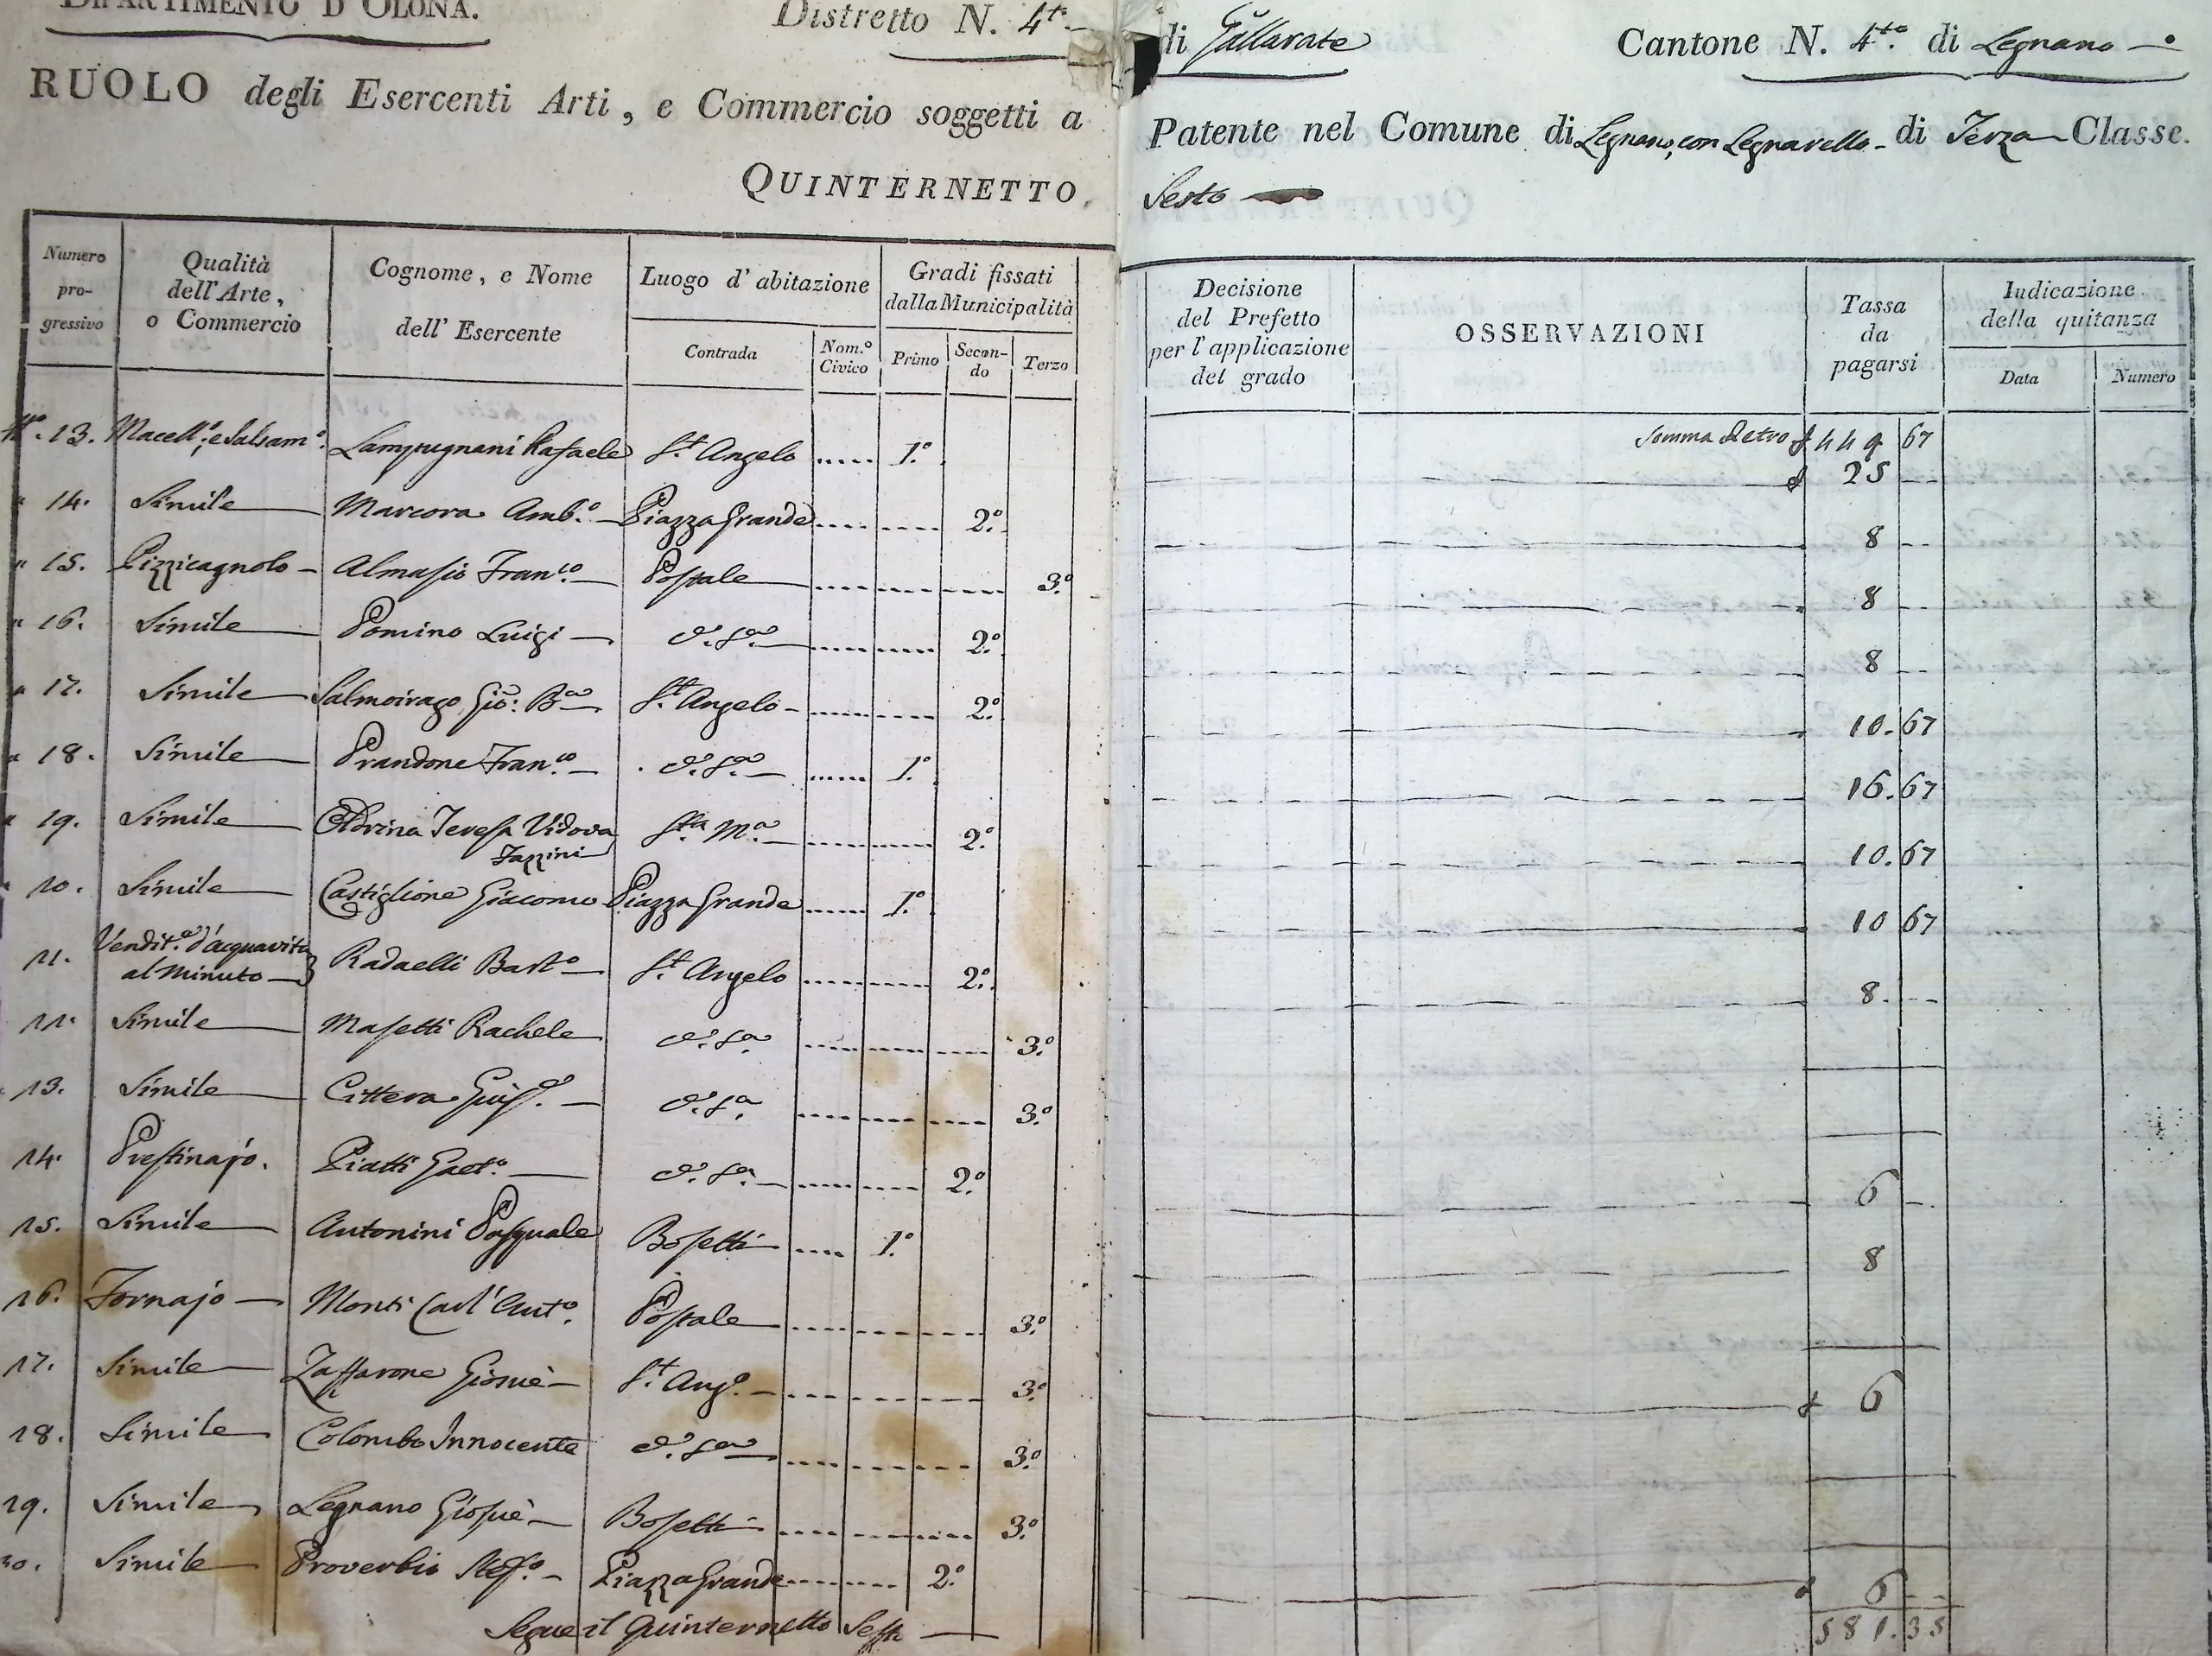 DIPARTIMENTO D'OLONA. Distretto N. 4to di Gallarate Cantone N. 4to di Legnano
RUOLO degli Esercenti Arti, e Commercio soggetti a Patente nel Comune di Legnano, con Legnarello - di Terza Classe.
QUINTERNETTO Sesto
Numero progressivo | Qualità dell'Arte, o Commercio | Cognome, e Nome dell' Esercente | Luogo d' abitazione | Gradi fissati dalla Municipalità | Decisione del Prefetto per l'applicazione del grado | OSSERVAZIONI | Tassa da pagarsi | Indicazione della quitanza
Contrada | Nom.º Civico | Primo | Secondo | Terzo | Data | Numero
Somma Retro £ 449 67
Nº. 13. Macell.º, e Salsam.º Lampugnani Rafaele S.t Angelo 1.º £ 25
" 14. Simile Marcora Amb.º Piazza Grande 2.º 8
" 15. Pizzicagnolo Almasio Fran.co Postale 3.º 8
" 16. Simile Pomino Luigi d.º S.a 2.º 8
" 17. Simile Salmoirago Gio: B.a S.t Angelo 2.º 10.67
" 18. Simile Prandone Fran.co d.º S.a 1.º 16.67
" 19. Simile Oldrina Teresa Vidova S.ta M.a 2.º 10.67
Fazzini
" 20. Simile Castiglione Giacomo Piazza Grande 1.º 10 67
21. Vendit.e d'acquavita
al Minuto Radaelli Bart.º S.t Angelo 2.º 8.
22. Simile Masetti Rachele d.º S.a 3.º
23. Simile Cittera Gius.e d.º S.a 3.º
24. Prestinajo. Piatti Gaet.º d.º S.a 2.º 6
25. Simile Antonini Pasquale Bosetti 1.º 8
26. Fornajo Monti Carl'Ant.º Postale 3.º
27. Simile Zaffarone Giosuè S.t Ang.º 3.º £ 6
28. Simile Colombo Innocente d.º S.a 3.º
29. Simile Legnano Giosuè Bosetti 3.º
30. Simile Proverbio Stef.º Piazza Grande 2.º £ 6
Segue il Quinternetto Sesto 581.35